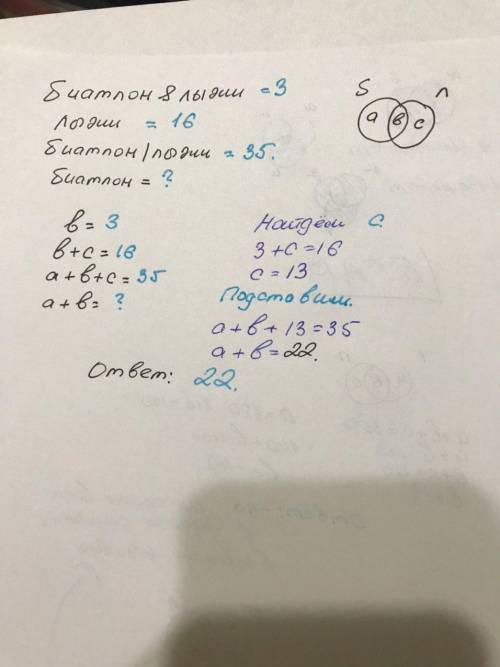 Биатлон & лыжи = 3
лыжи = 16
Биатлон | лыжи = 35.
Биатлон = ?
Б л
а в с
в = 3
в + с = 16
а + в + с = 35
а + в = ?
Найдём с.
3 + с = 16
с = 13
Подставим.
а + в + 13 = 35
а + в = 22.
Ответ: 22.